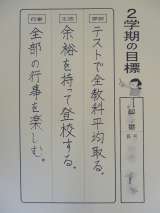 2学期の目標
学習
テストで全教科平均取る。
生活
余裕を持って登校する。
行事
全部の行事を楽しむ。